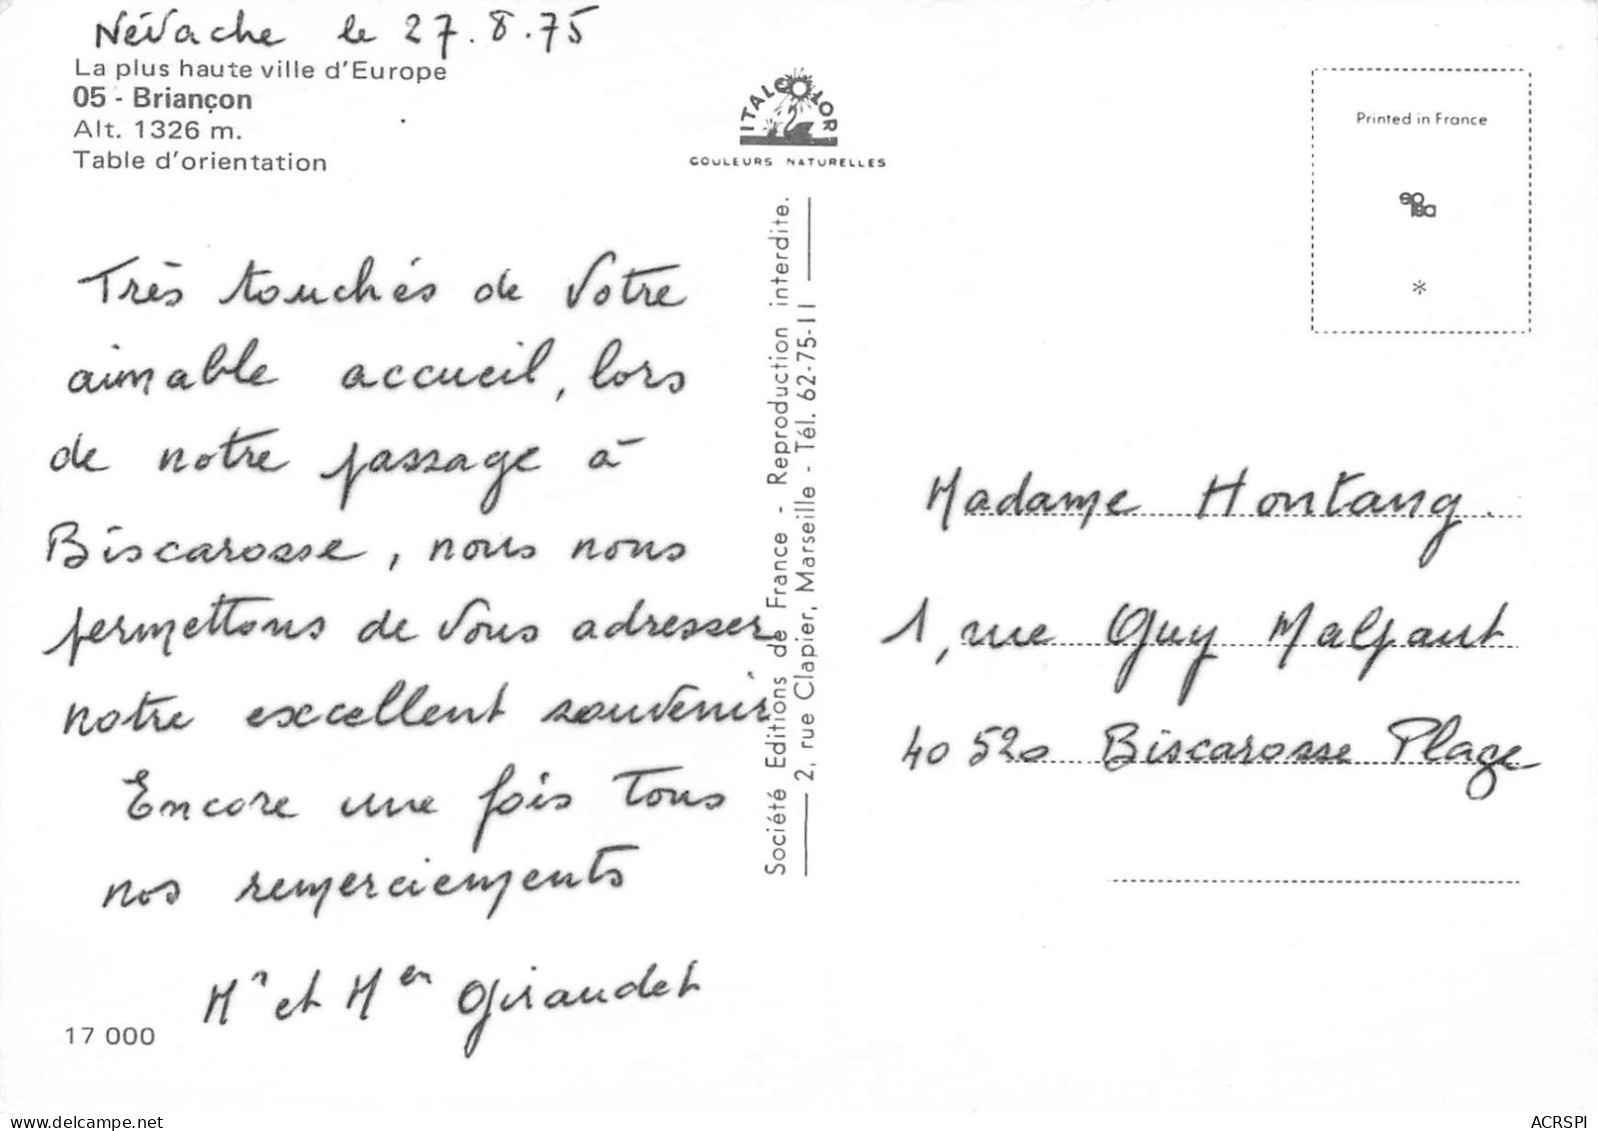 Névache le 27.8.75
La plus haute ville d'Europe
05 - Briançon
Alt. 1326 m.
Table d'orientation
ITALCOLOR
COULEURS NATURELLES
Printed in France
*
Très touchés de votre
aimable accueil, lors
de notre passage à
Biscarosse, nous nous
permettons de vous adresser
notre excellent souvenir
Encore une fois tous
nos remerciements
Mr et Men Giraudet
17 000
Société Editions de France - Reproduction interdite.
2, rue Clapier, Marseille - Tél. 62-75-11
Madame Hontang.
1, rue Guy Malpaut
40 520 Biscarosse Plage
ACRSPI